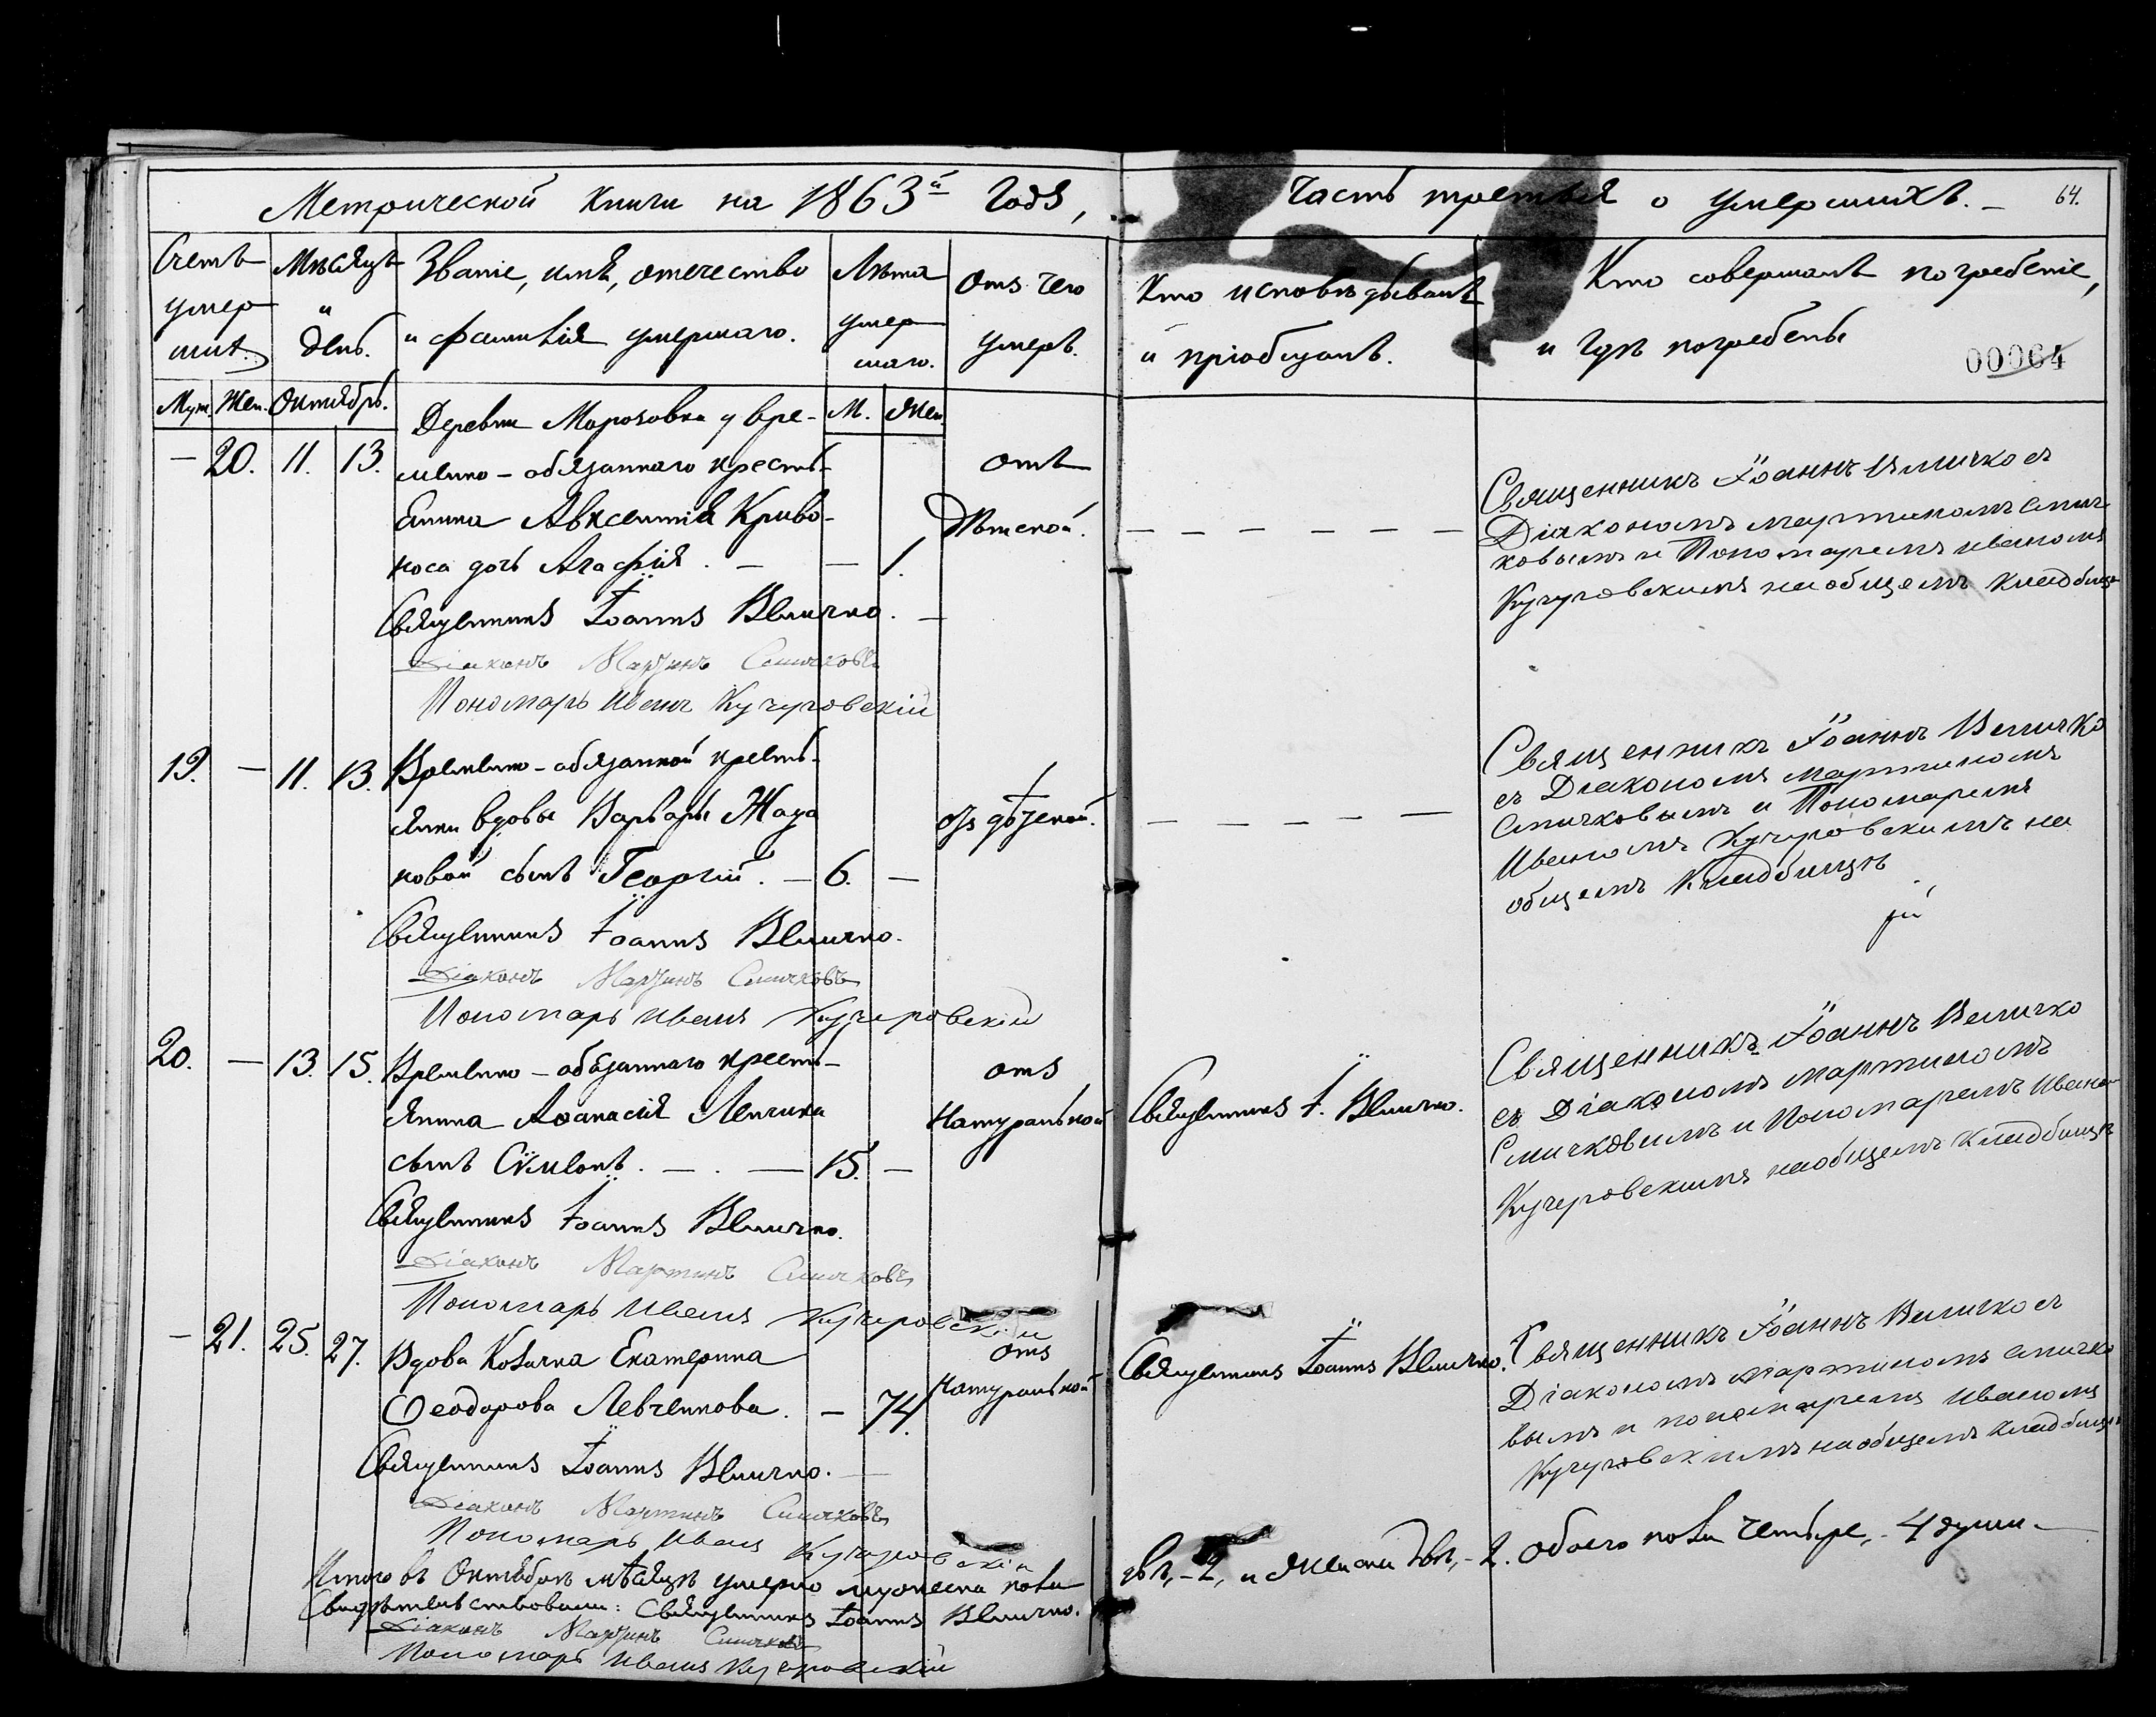 Метрической книги на 1863й годъ,
часть третья о умершихъ. –
64.
Счетъ умер шихъ.
Мѣсяцъ и день.
Званіе, имя, отчество
и фамилія умершаго.
Лѣта умер шаго.
Отъ чего умеръ.
Кто исповѣдывалъ
и пріобщалъ.
Кто совершалъ погребеніе,
и гдѣ погребены
00064
Муж. Жен. Октябрь. М. Жен.
Деревни Морозовки у вре-
– 20. 11. 13. менно-обязаннаго кресть- отъ
янина Авксентія Криво- Дѣтской.
носа дочь Агафія. – – 1.
Священникъ Іоаннъ Величко. –
Діаконъ Мартинъ Смичковъ
Пономарь Иванъ Кучеровскій
Священникъ Іоаннъ Величко съ
Діакономъ Мартиномъ Смич-
ковымъ и Пономаремъ Иваномъ
Кучеровскимъ на общемъ кладбищѣ
19. – 11. 13. Временно-обязанной кресть-
янки вдовы Варвары Жада
новой сынъ Георгій. – 6. –
отъ дѣтской.
Священникъ Іоаннъ Величко.
Діаконъ Мартинъ Смичковъ
Пономарь Иванъ Кучеровскій
Священникъ Іоаннъ Величко
съ Діакономъ Мартиномъ
Смичковымъ и Пономаремъ
Иваномъ Кучеровскимъ на
общемъ Кладбищѣ
20. – 13. 15. Временно-обязаннаго кресть-
янина Аѳанасія Легчика
сынъ Сѵмеонъ. – . – 15. –
отъ
Натуральной
Священникъ І. Величко.
Священникъ Іоаннъ Величко.
Діаконъ Мартинъ Смичковъ
Пономарь Иванъ Кучеровскій
Священникъ Іоаннъ Величко
съ Діакономъ Мартиномъ
Смичковымъ и Пономаремъ Иваномъ
Кучеровскимъ на общемъ Кладбищѣ
– 21. 25. 27. Вдова Козачка Екатерина
Ѳеодорова Левченкова. – 74.
отъ
Натуральной
Священникъ Іоаннъ Величко.
Священникъ Іоаннъ Величко. –
Діаконъ Мартинъ Смичковъ
Пономарь Иванъ Кучеровскій
Священникъ Іоаннъ Величко съ
Діакономъ Мартиномъ Смичко
вымъ и пономаремъ Иваномъ
Кучеровскимъ на общемъ кладбищѣ
Итого въ Октябрѣ мѣсяцѣ умерло мужеска пола
двѣ, – 2, и женска двѣ, – 2. обоего пола четыре, – 4 души. –
Свидѣтельствовали: Священникъ Іоаннъ Величко.
Діаконъ Мартинъ Смичковъ
Пономарь Иванъ Кучеровскій